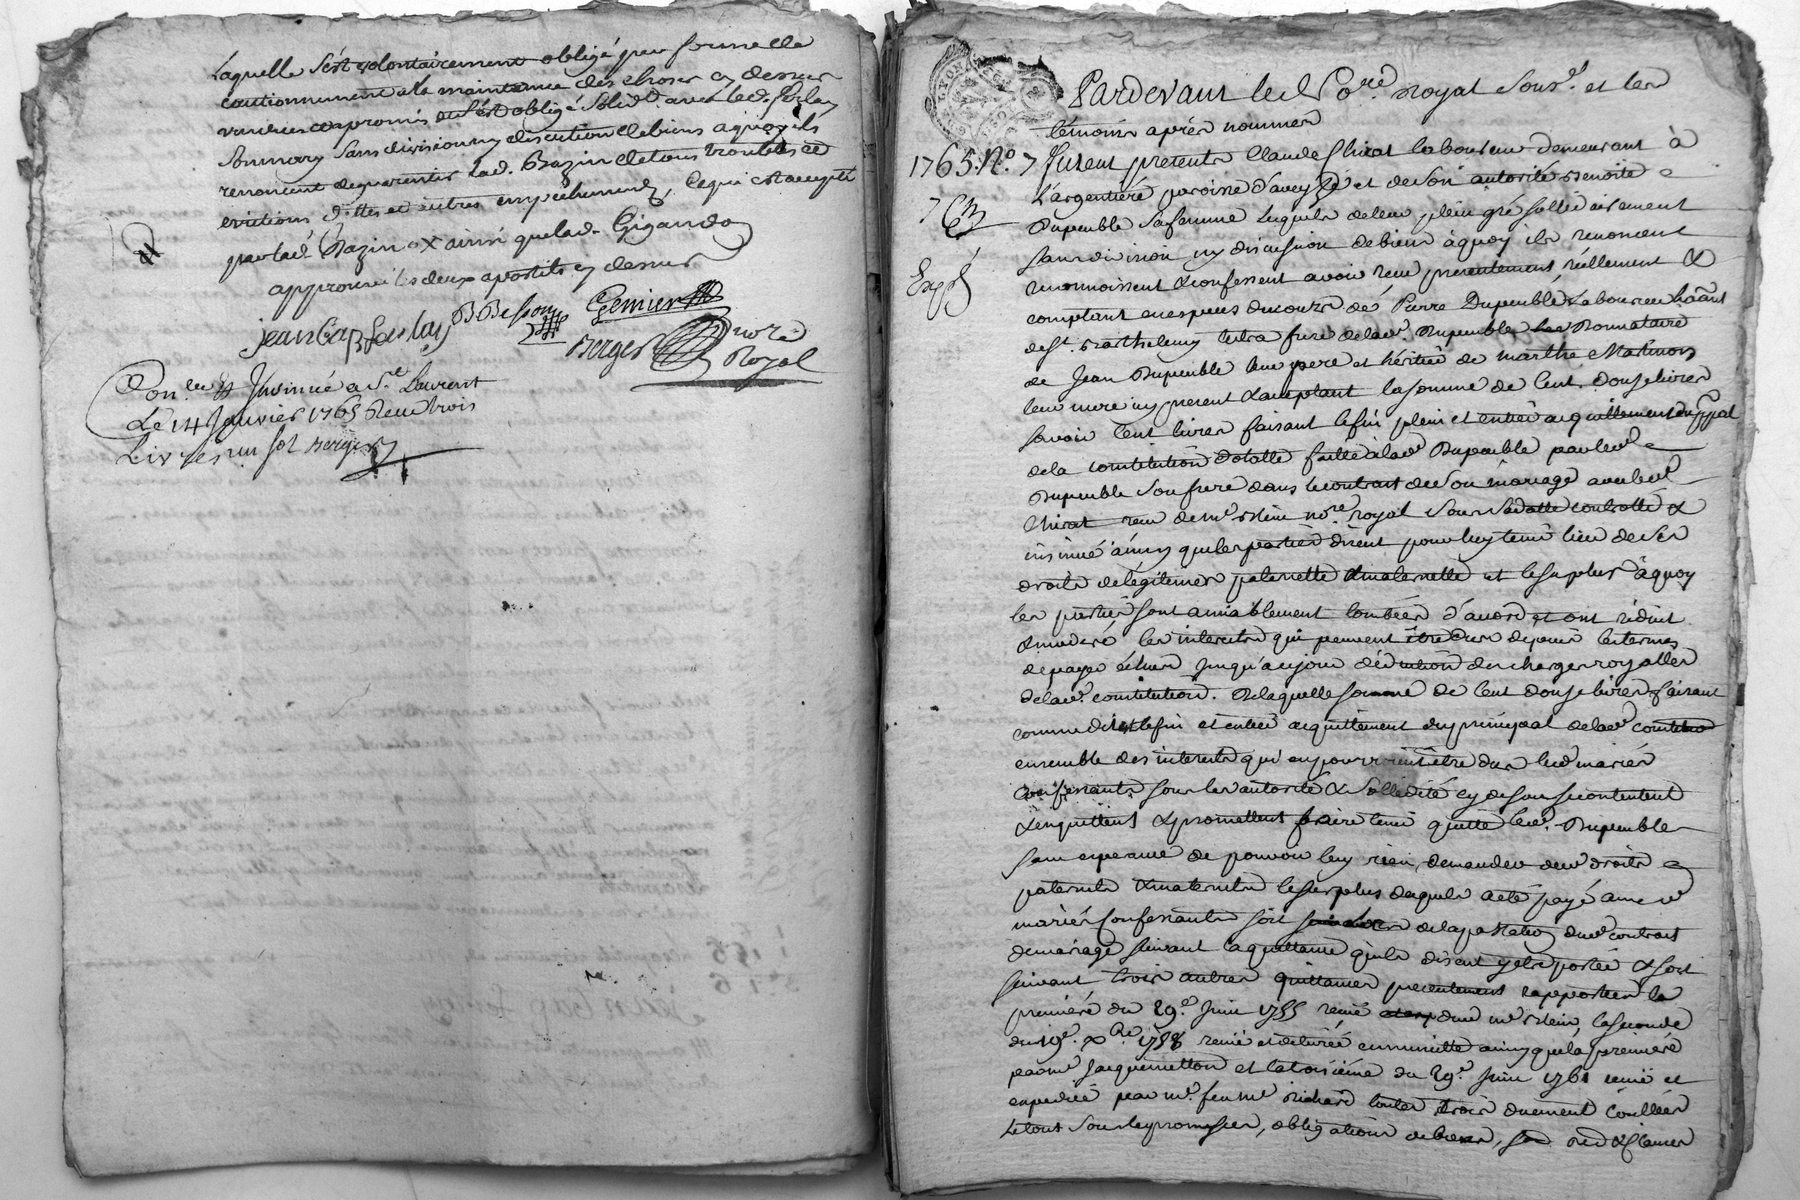 Laquelle s'est volontairement obligé par formelle
cautionnement a la maintenue des choses cy dessus
sans division ny discution de biens a quoy ils
renoncent de garentir lad. Bazin de tous troubles et
evictions dettes et autres empechements, ce qui est accepté
par lad. Bazin × ainsi que lad. Gigandon
approuvé les deux apostils cy dessus
jean Cap
BBesson
Grenier
Berger
nore
Royal
Con.lee et Insinué a St. Laurent
Le 14 Janvier 1765 Reçu trois
Livres un sol Berger
Pardevant le No.re royal sous.é et les
témoins après nommés
1765. No. 7 Furent presents Claude Chirat laboureur demeurant à
L'argentière paroisse d'aveyze et de son autorité Benoite
Dupeuble sa femme lesquels de leur plein gré sollidairement
Expé
sans division ny discussion de biens à quoy ils renoncent
reconnoissent & confessent avoir reçu presentement, réellement &
comptant en especes du cours de Pierre Dupeuble Laboureur hâant
de St. Barthelemy Lestra frere de lad. Dupeuble Donnataire
de Jean Dupeuble leur pere et héritier de marthe
leur mere icy present & acceptant la somme de Cent douze livres
savoir Cent livres faisant le fin plein et entier acquittement du ppal
de la constitution dotalle faitte à lad. Dupeuble par led.
Dupeuble son frere dans le contrat de son mariage avec led.
Chirat reçu de me. nore. royal sous sa datte controllé &
insinué ainsy que les parties disent pour luy tenir lieu de ses
droits de légitimes paternelle & maternelle et le surplus à quoy
les parties sont amiablement tombées d'accord et ont réduit
& moderé les interets qui peuvent être dus depuis les termes
de payes échus jusqu'aujour déduction des charges royalles
de lad. constitution. De laquelle somme de Cent douze livres faisant
comme dit est le fin et entier acquittement du principal de lad. constiton
ensemble des interets qu'en pourroient être dus led. mariés
confessants sous les autorité & sollidité cy dessus se contentent
& en quittent & promettent faire tenir quitte led. Dupeuble
sans esperance de pouvoir luy rien demander desd. droits
paternels & maternels le surplus desquels a été payé auxd.
mariés confessants soit de la passation dud. contrat
de mariage suivant la quittance qu'ils disent y etre portée & soit
suivant trois autres quittances presentement rapportées la
premiere du 29e. Juin 1755 reçue dud. me. la seconde
du 19e. xbre. 1758 reçue et delivrée en minutte ainsy que la premiere
par me. Jacquemetton et la troisième du 29e. Juin 1761 reçue et
expediée par me. feu me. Richard touttes trois duement côllées
Le tout sous les promesses, obligations de biens,